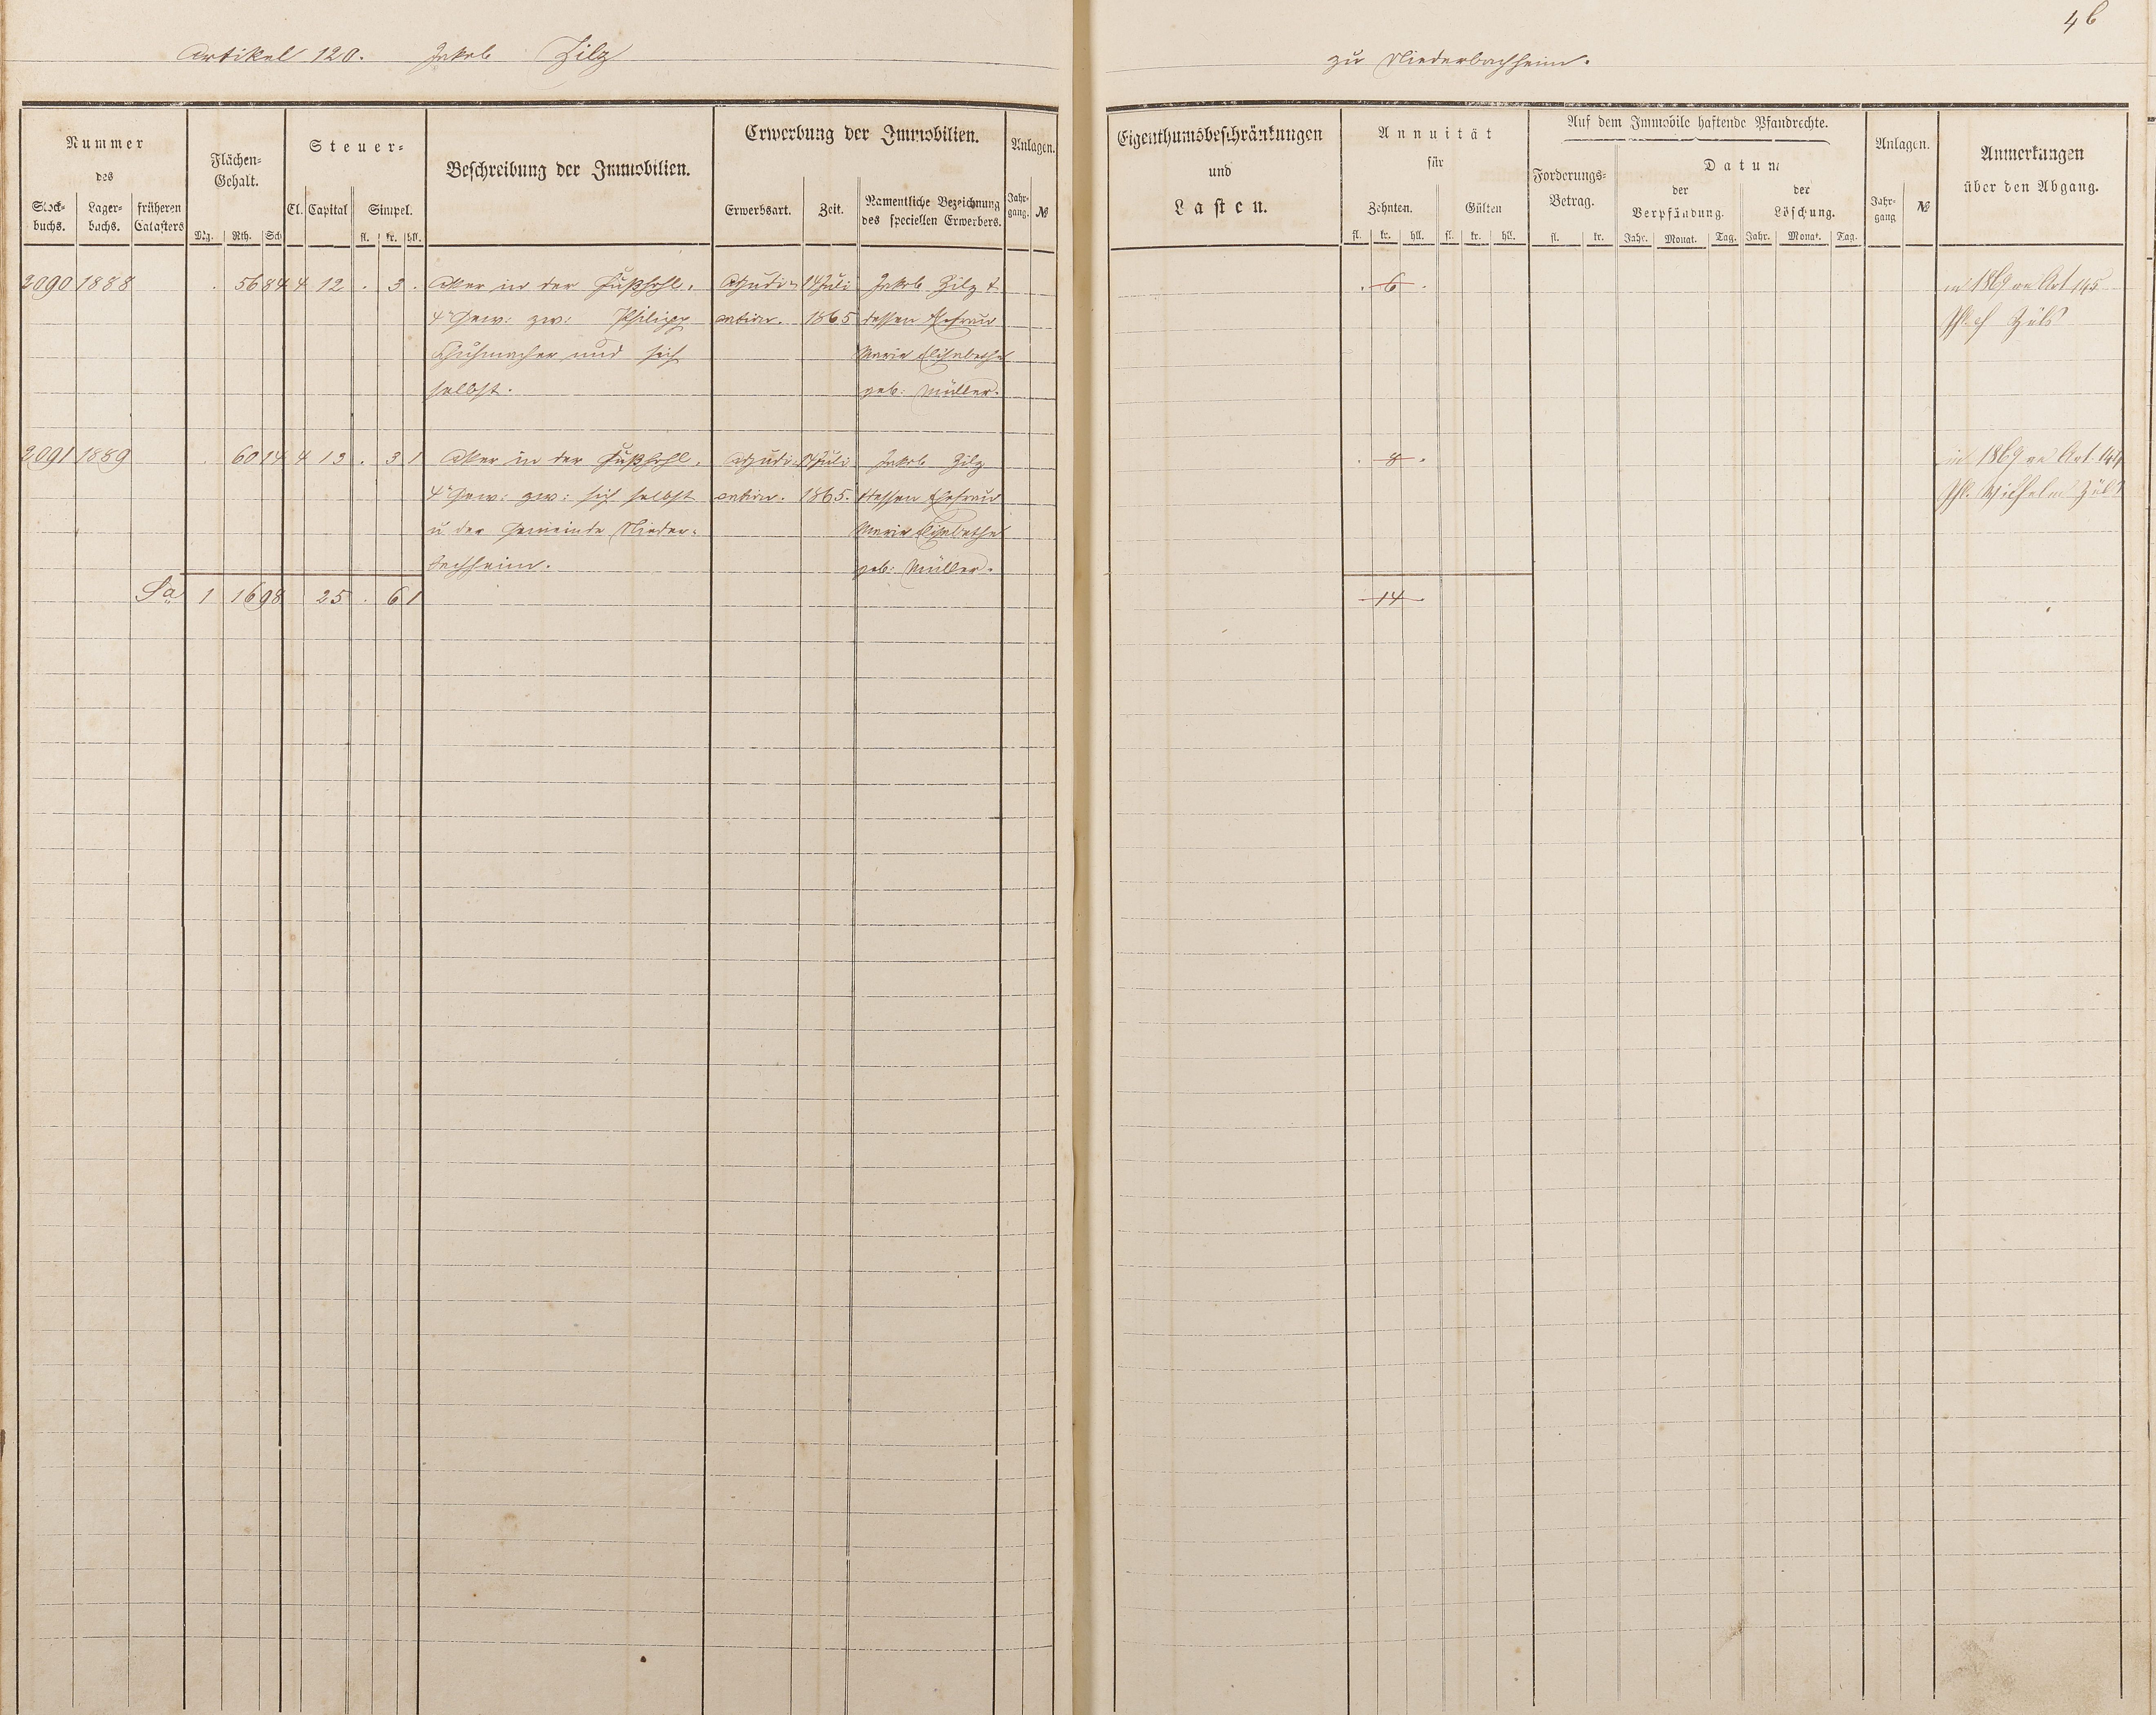 46
Artikel 120. Jakob Zilz zu Niederbachheim.
Nummer
des
Stock-
buchs.
Lager-
buchs.
früheren
Catasters
Flächen-
Gehalt.
Mg. Rth. Sch
Steuer-
Cl. Capital Simpel.
fl. kr. hll.
Beschreibung der Immobilien.
Erwerbung der Immobilien.
Erwerbsart. Zeit.
Namentliche Bezeichnung
des speciellen Erwerbers.
Anlagen.
Jahr-
gang. №
Eigenthumsbeschränkungen
und
Lasten.
Annuität
für
Zehnten. Gülten
fl. kr. hll. fl. kr. hll.
Auf dem Immobile haftende Pfandrechte.
Forderungs-
Betrag.
fl. kr.
Datum
der
Verpfändung.
der
Löschung.
Jahr. Monat. Tag. Jahr. Monat. Tag.
Anlagen.
Jahr-
gang №
Anmerkungen
über den Abgang.
2090 1888 . 56 84 4 12 . 3 . Acker in der Fußhohl. Adjudi- 14 Juli Jakob Zilz & . 6 . 1869 Art 145
4r Gew: zw: Philipp cation. 1865 dessen Ehefrau
Schuhmacher und sich Maria Elisabetha
selbst. geb: Müller.
2091 1889 . 60 14 4 13 . 3 1 Acker in der Fußhohl. Adjudi- 14 Juli Jakob Zilz . 8 . 1869 Art. 144
4r Gew: zw: sich selbst cation. 1865. dessen Ehefrau Wilhelm
u der Gemeinde Nieder- Maria Elisabetha
bachheim. geb: Müller.
Sa 1 16 98 25 . 6 1 . 14 .